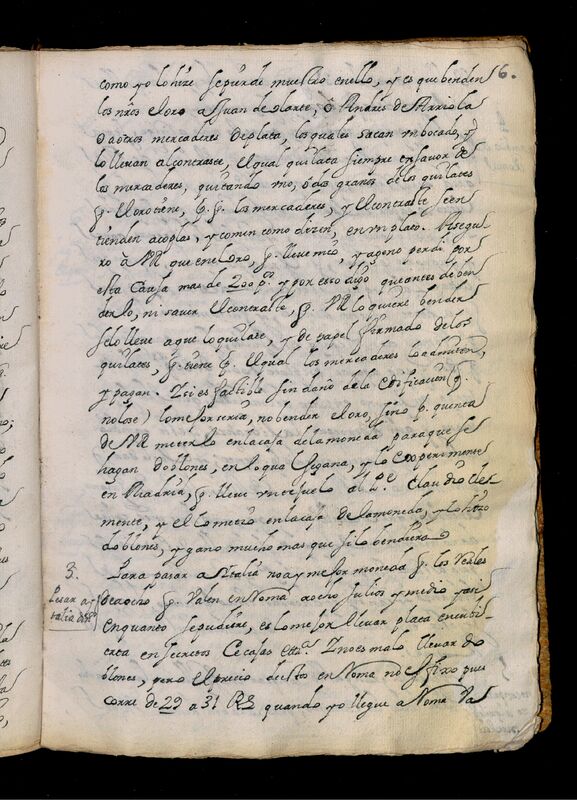 6.
como yo lo hize se puede muestro en ello, y es que benden
los nr̃os el oro a Juan de olarte, ô Andres de Arriola
o a otros mercaderes de plata, los quales sacan un bocado, y
lo llevan al contraste, el qual quilata siempre en favor de
los mercaderes, quitando uno, ô dos granos de los quilates
q̃. el oro tiene, los mercaderes, y el contraste se en
tienden a coplas, y comen como dizen, en un plato. Asegu
ro à VR que en el oro, q̃. lleve mio, y ageno perdi por
esta causa mas de 200 p.s y por esso digo que antes de ben
derlo, ni saver el contraste, q̃. VR lo quiere bender
se lo lleve a que lo quilate, y dè papel firmado de los
quilates, q̃. tiene el qual los mercaderes lo admiten,
y pagan. I si es factible sin daño de la edificacion (q.
no lo se) lo mejor seria, no bender el oro, sino p. quenta
de VR meterlo en la casa de la moneda para que se
hagan doblones, en lo qual se gana, y lo experimente
en Madrid, q̃. lleve un tejuelo al P.e Claudio Cle
mente, y el lo metio en la casa de la moneda, y lo hizo
doblones, y gano mucho mas que si lo bendiera
3.
Para pasar a Italia no ay mejor moneda q̃. los reales
de a ocho q̃. valen en Roma a ocho julios y medio y asi
en quanto se pudiere, es lo mejor llevar plata encubi
erta en secretos de cajas ett.a I no es malo llevar do
blones, pero el precio destos en Roma no es fixo pues
corre de 29 a 31 Rs quando yo llegue a Roma va